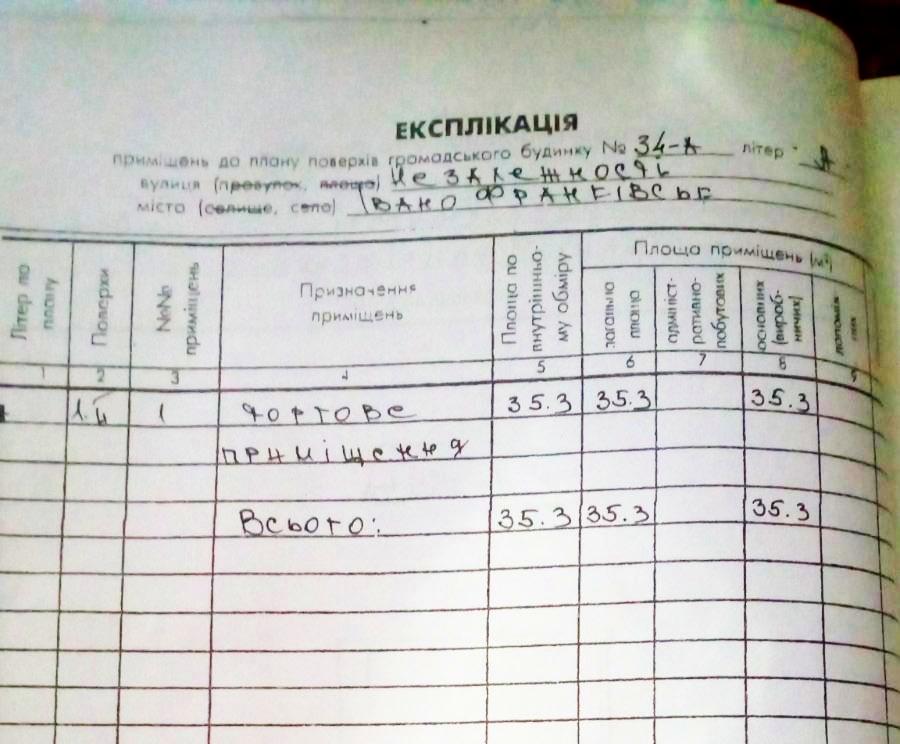 ЕКСПЛІКАЦІЯ
приміщень до плану поверхів громадського будинку № 34-А літер "А
вулиця (провулок, площа) Незалежность
місто (селище, село) Івано Франківськ
Площа приміщень (м²)
Літер по плану
Поверхи
№№ приміщень
Призначення приміщень
Площа по внутрішньому обміру
загальна площа
адміністративно-побутових
основних (виробничих)
1 2 3 4 5 6 7 8 9
1 1 торгове 35.3 35.3 35.3
приміщення
Всього: 35.3 35.3 35.3